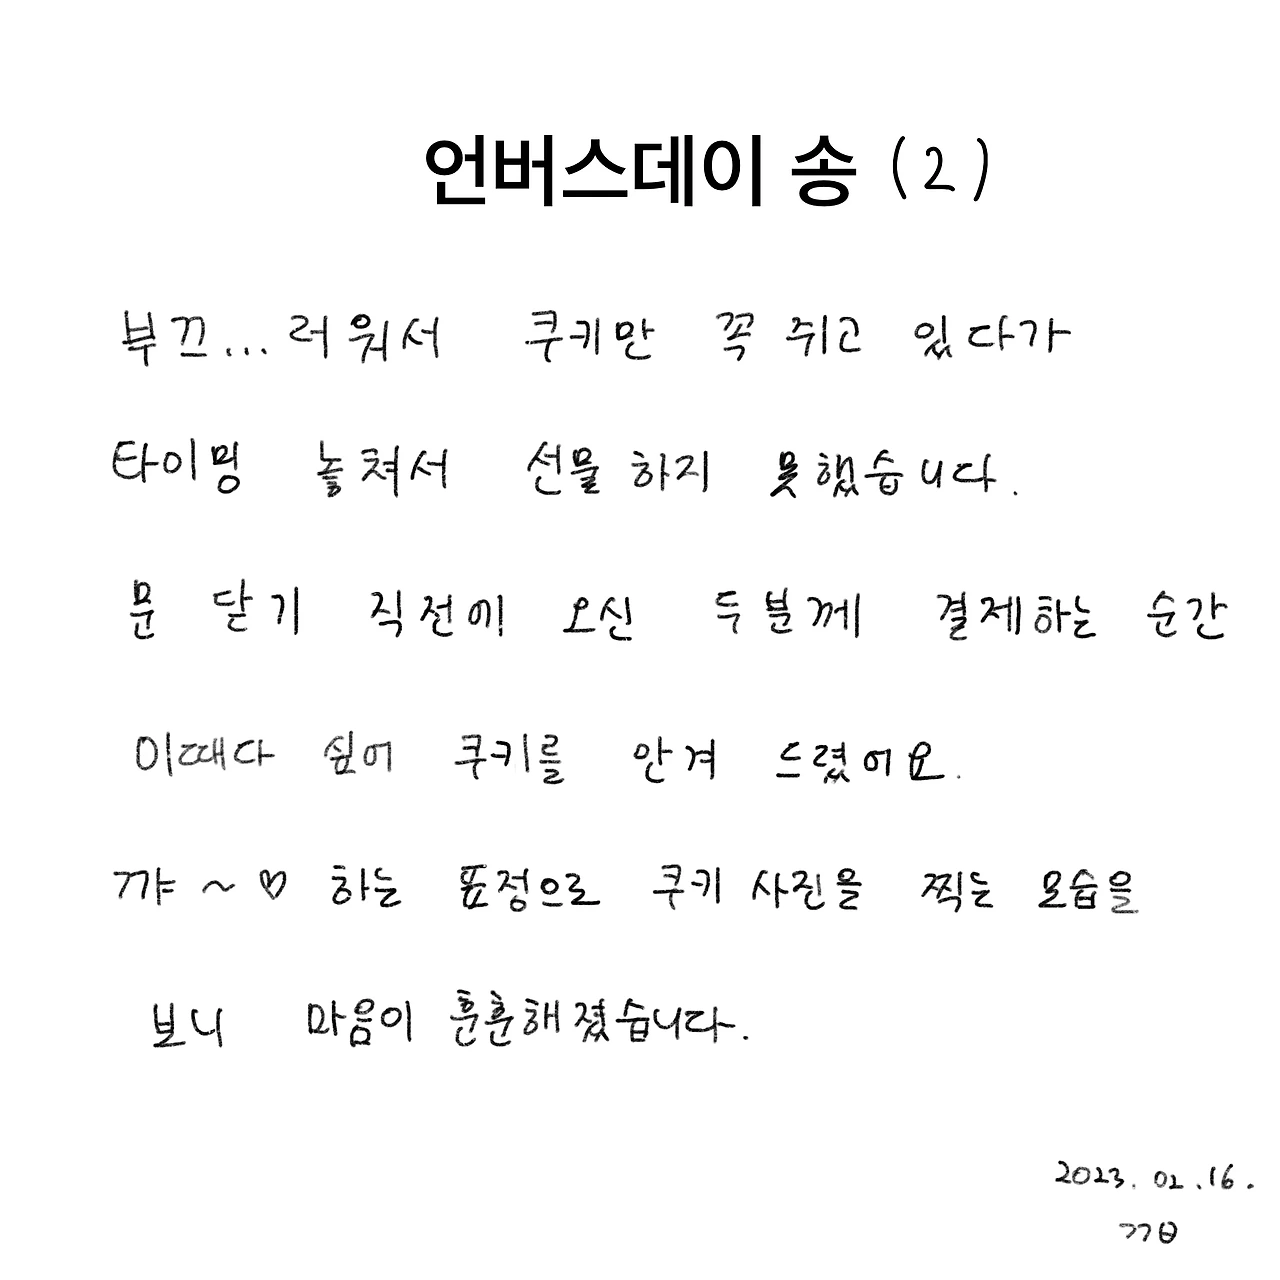 언버스데이 송 (2)
부끄...러워서 쿠키만 꼭 쥐고 있다가
타이밍 놓쳐서 선물하지 못했습니다.
문 닫기 직전에 오신 두 분께 결제하는 순간
이때다 싶어 쿠키를 안겨 드렸어요.
꺄~♡ 하는 표정으로 쿠키 사진을 찍는 모습을
보니 마음이 훈훈해졌습니다.
2023. 02. 16.